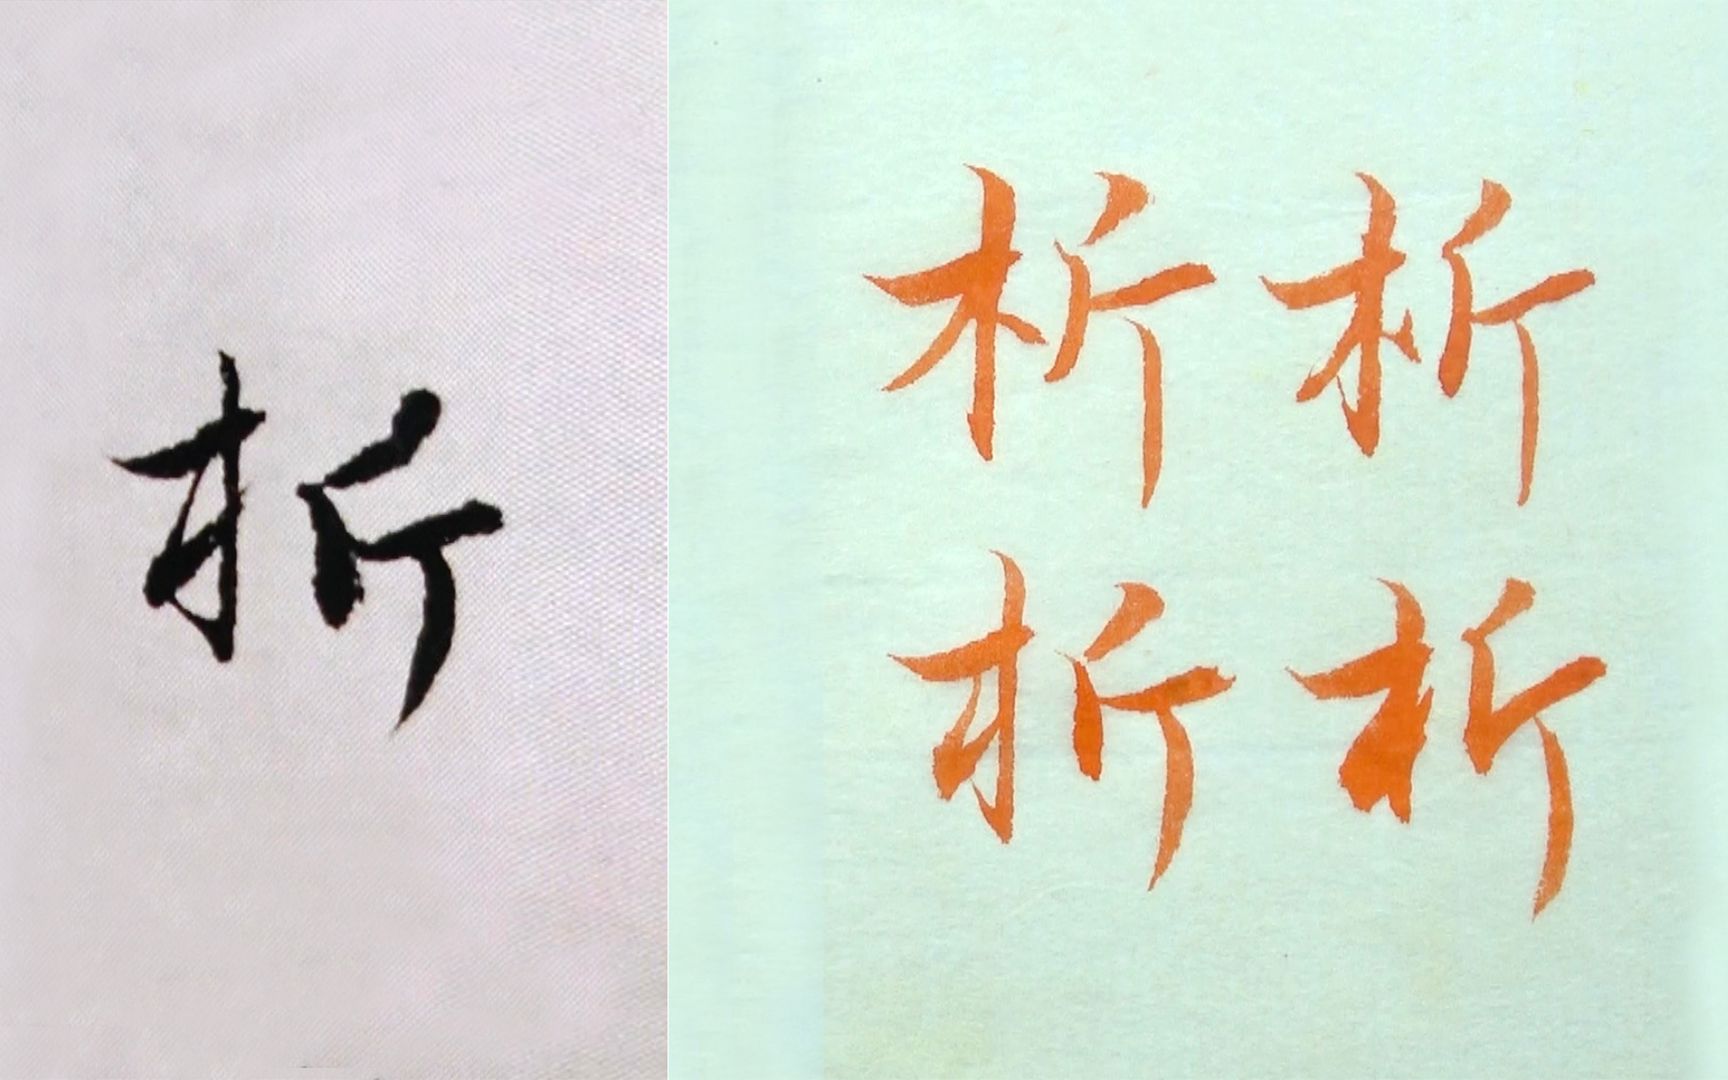 析
析 析
析 析